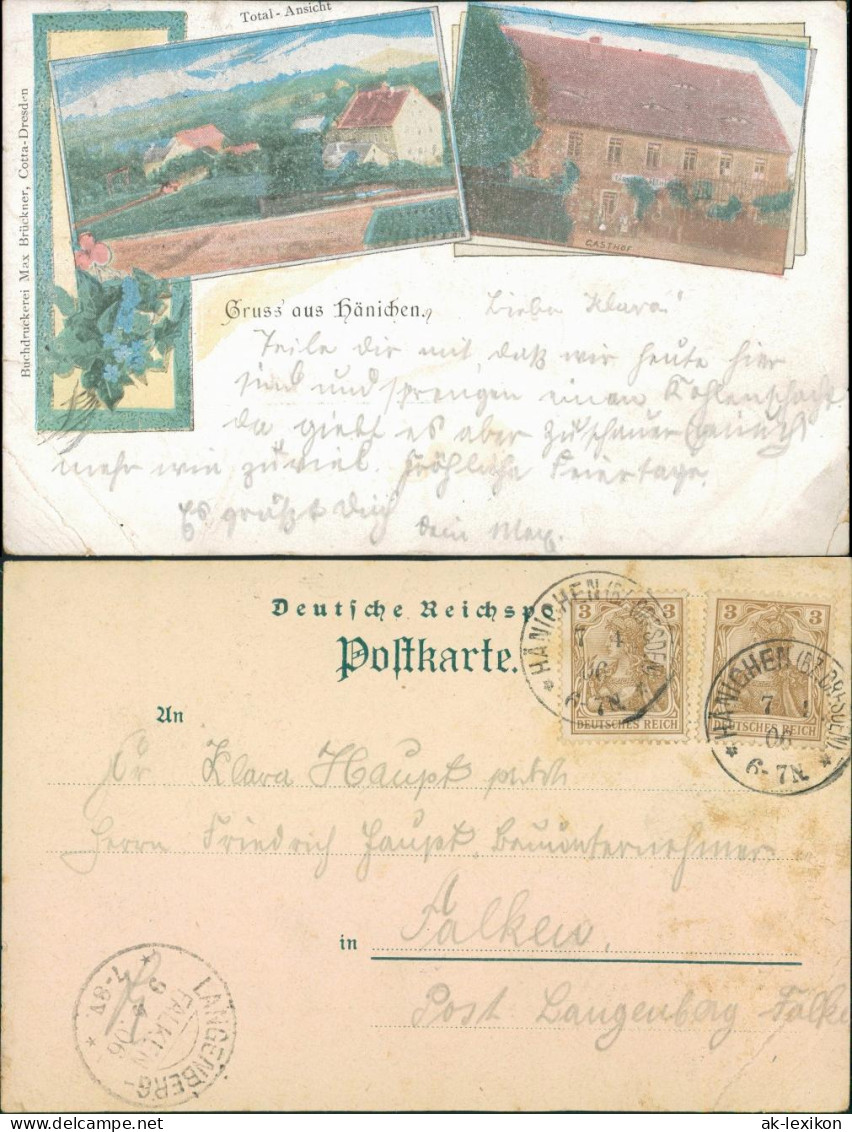 Total-Ansicht
Buchdruckerei Max Brückner, Cotta-Dresden
GASTHOF
Gruss aus Hänichen.
Liebe Klara!
Teile dir mit daß wir heute hier
sind und sprengen einen Kohlenschacht
da giebt es aber Zuschauer
mehr wie zuviel. Fröhliche Feiertage.
Es grüßt Dich
dein Max.
Deutsche Reichspo
Postkarte.
HÄNICHEN (BZ. DRESDEN)
7 4
06
6-7N.
3 3
DEUTSCHES REICH
3 3
DEUTSCHES REICH
HÄNICHEN (BZ. DRESDEN)
7
06
6-7N.
An
Klara Haupt
Herrn Friedrich Haupt, Bauunternehmer
in Falken,
Post Langenberg Falke
LANGENBERG-
FALKEN
9 4 06
7-8V
ak-lexikon